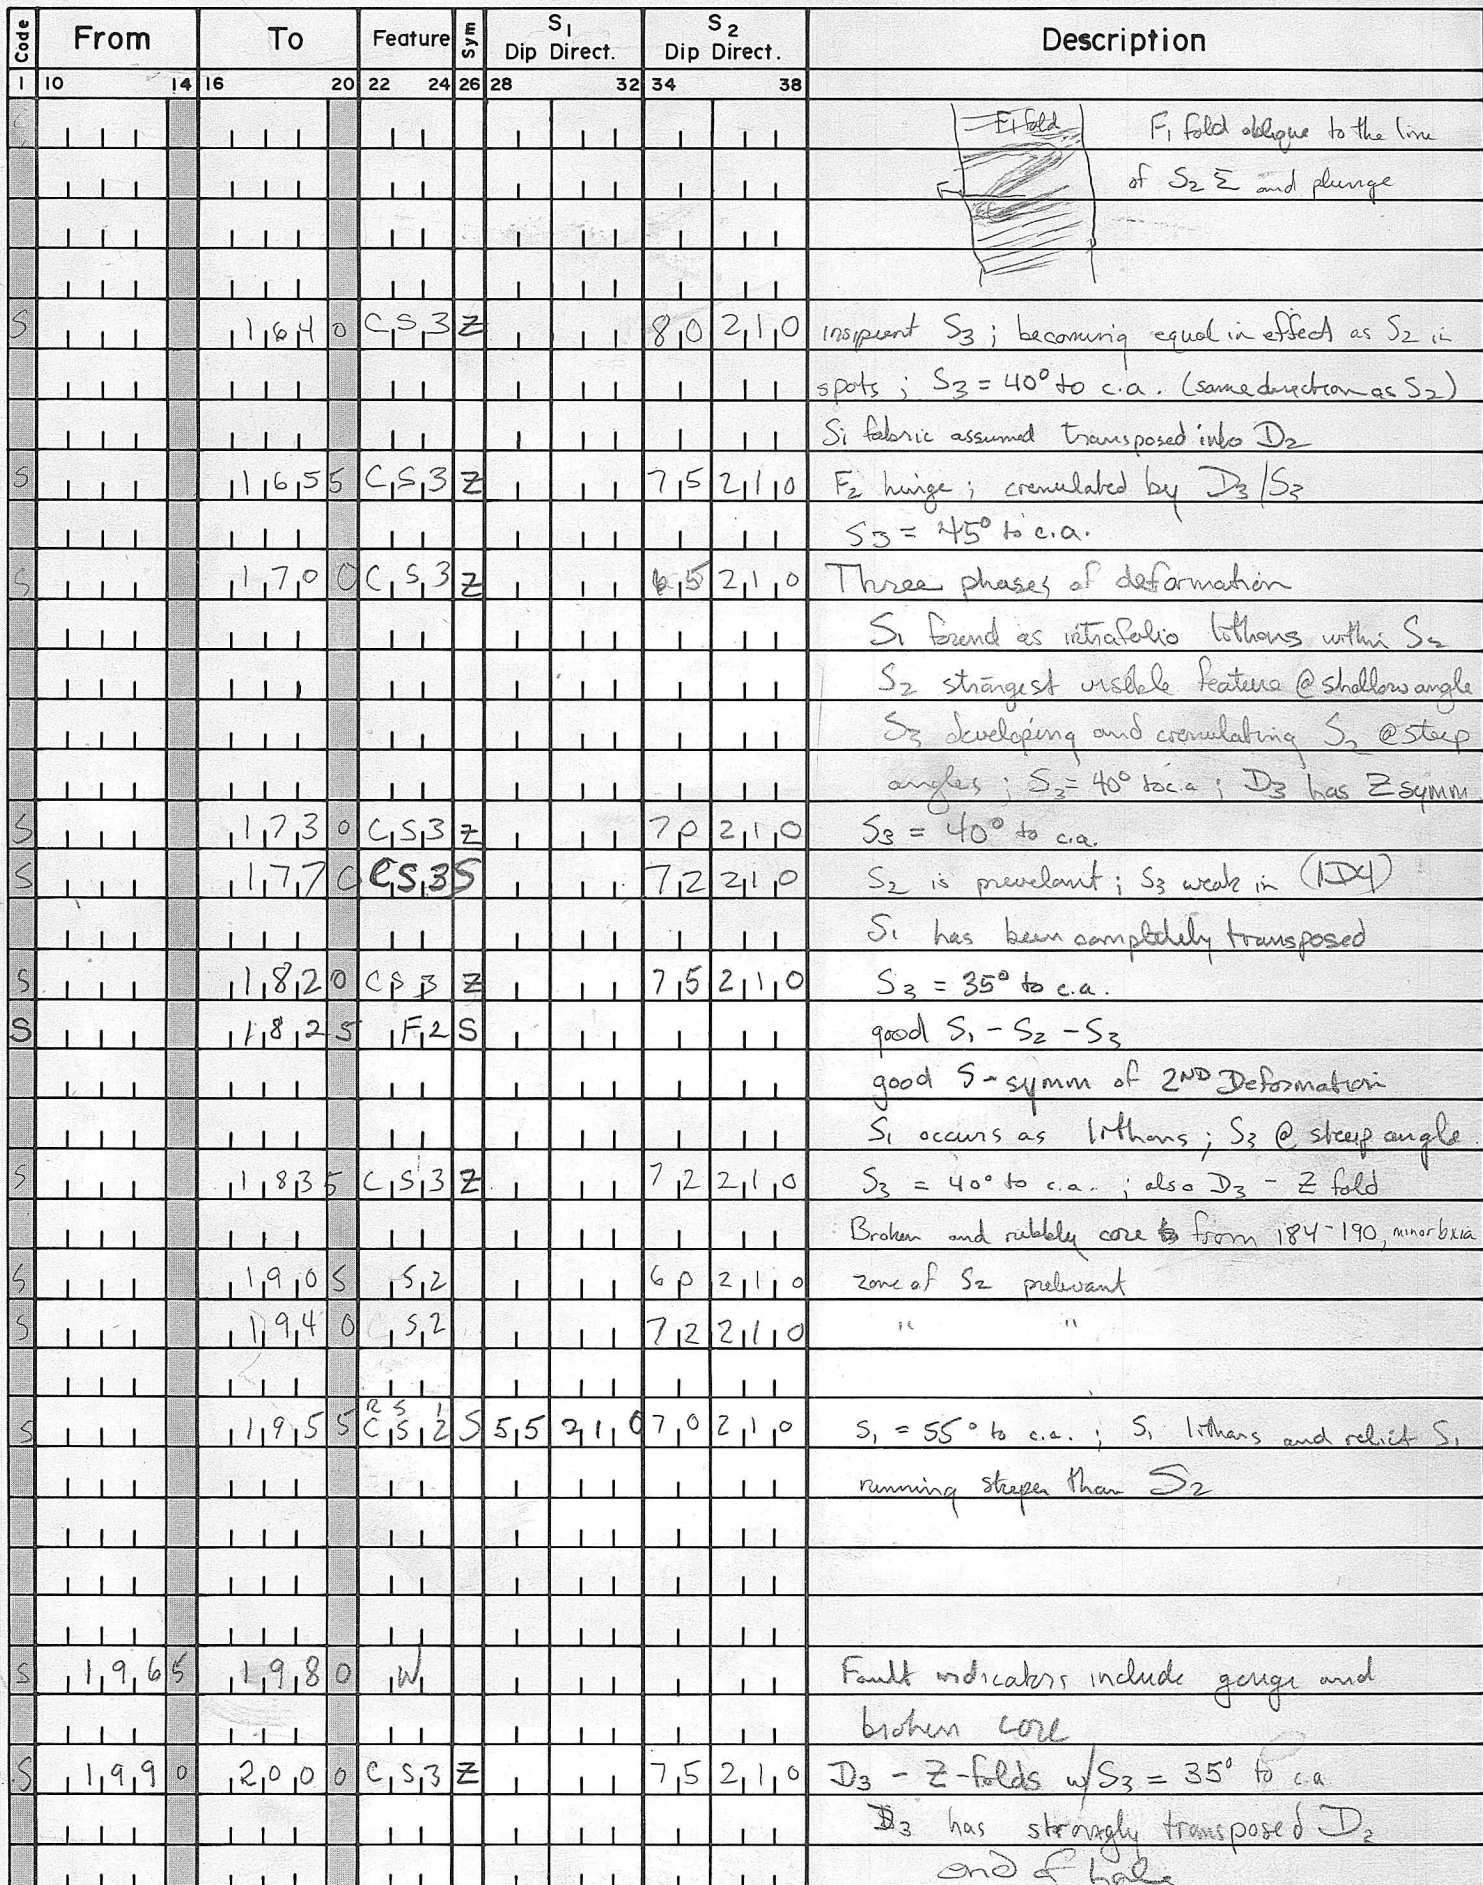 Code From To Feature Sym S1 Dip Direct. S2 Dip Direct. Description
1 10 14 16 20 22 24 26 28 32 34 38
F1 fold F1 fold oblique to the line
of S2 Σ and plunge
S 164 0 CS3 Z 80 210 insipient S3 ; becoming equal in effect as S2 in
spots ; S3 = 40° to c.a. (same direction as S2)
S1 fabric assumed transposed into D2
S 165 5 CS3 Z 75 210 F2 hinge ; crenulated by D3/S3
S3 = 45° to c.a.
S 170 0 CS3 Z 65 210 Three phases of deformation
S1 found as intrafolio lithons within S2
S2 strongest visible feature @ shallow angle
S3 developing and crenulating S2 @ steep
angles ; S3 = 40° to c.a ; D3 has Z symm.
S 173 0 CS3 Z 70 210 S3 = 40° to c.a.
S 177 0 CS3 S 72 210 S2 is prevelant ; S3 weak in (1D4)
S1 has been completely transposed
S 182 0 CS3 Z 75 210 S3 = 35° to c.a.
S 182 5 F2 S good S1 - S2 - S3
good S-symm of 2ND Deformation
S1 occurs as lithons ; S3 @ steep angle
S 183 5 CS3 Z 72 210 S3 = 40° to c.a. ; also D3 - Z fold
Broken and rubbly core from 184-190, minor bxia
S 190 5 S2 60 210 zone of S2 prelevant
S 194 0 S2 72 210 " "
RS1
S 195 5 CS2 S 55 210 70 210 S1 = 55° to c.a. ; S1 lithons and relict S1
running steeper than S2
S 196 5 198 0 W Fault indicators include gouge and
broken core
S 199 0 200 0 CS3 Z 75 210 D3 - Z-folds w/S3 = 35° to c.a
D3 has strongly transposed D2
end of hole